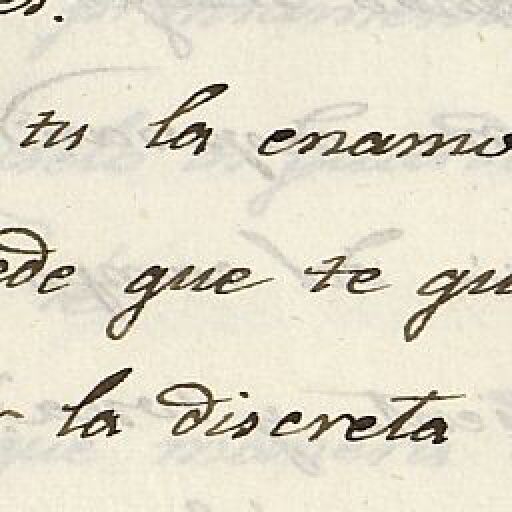 tu la enamo
ede que te qu
la discreta